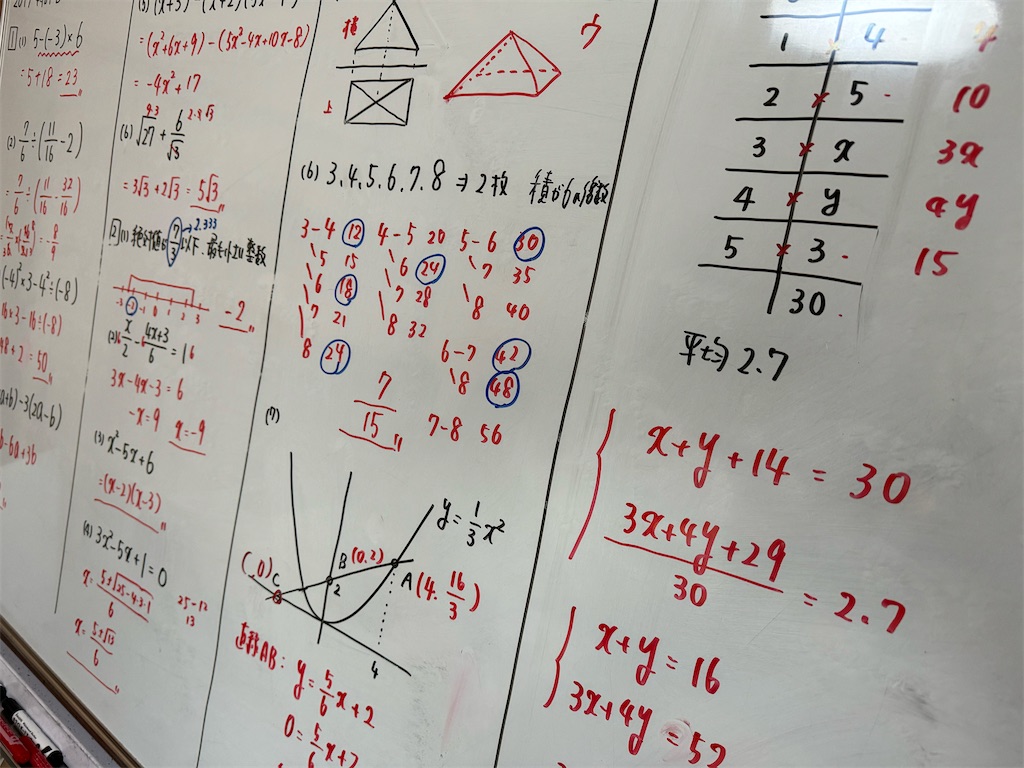 1 (1) 5-(-3)×6
=5+18=23
(2) 7/6÷(11/16-2)
=7/6÷(11/16-32/16)
(-4)²×3-4²÷(-8)
16×3-16÷(-8)
48+2=50
(a+b)-3(2a-b)
=(x²+6x+9)-(5x²-4x+10x-8)
=-4x²+17
9·3 2·3√3
(6) √27+6/√3
=3√3+2√3=5√3
2.333
2 (1) 絶対値が7/3以下、最も小さい整数
-3 -2 -1 0 1 2 3
-2
(2) x/2-4x+3/6=1
3x-4x-3=6
-x=9 x=-9
(3) x²-5x+6
=(x-2)(x-3)
(4) 3x²-5x+1=0
x=5±√25-4·3·1/6
25-12
13
x=5±√13/6
横
上
ウ
(6) 3,4,5,6,7,8⇒2枚 積が6の倍数
3-4 12 4-5 20 5-6 30
5 15 6 24 7 35
6 18 7 28 8 40
7 21 8 32 6-7 42
8 24 8 48
7/15 7-8 56
(7)
y=1/3x²
B(0,2)
A(4,16/3)
( ,0)C
2
4
直線AB: y=5/6x+2
0=5/6x+2
1 × 4
2 × 5 10
3 × x 3x
4 × y 4y
5 × 3 15
30
平均 2.7
x+y+14=30
3x+4y+29/30=2.7
x+y=16
3x+4y=52